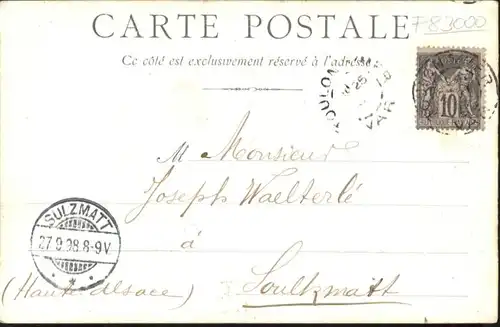 CARTE POSTALE
F83000
Ce côté est exclusivement réservé à l'adresse
TOULON
VAR
10
M Monsieur
Joseph Waelterlé
à
Soultzmatt
(Haute Alsace)
SULZMATT
27.9.98.8-9V.